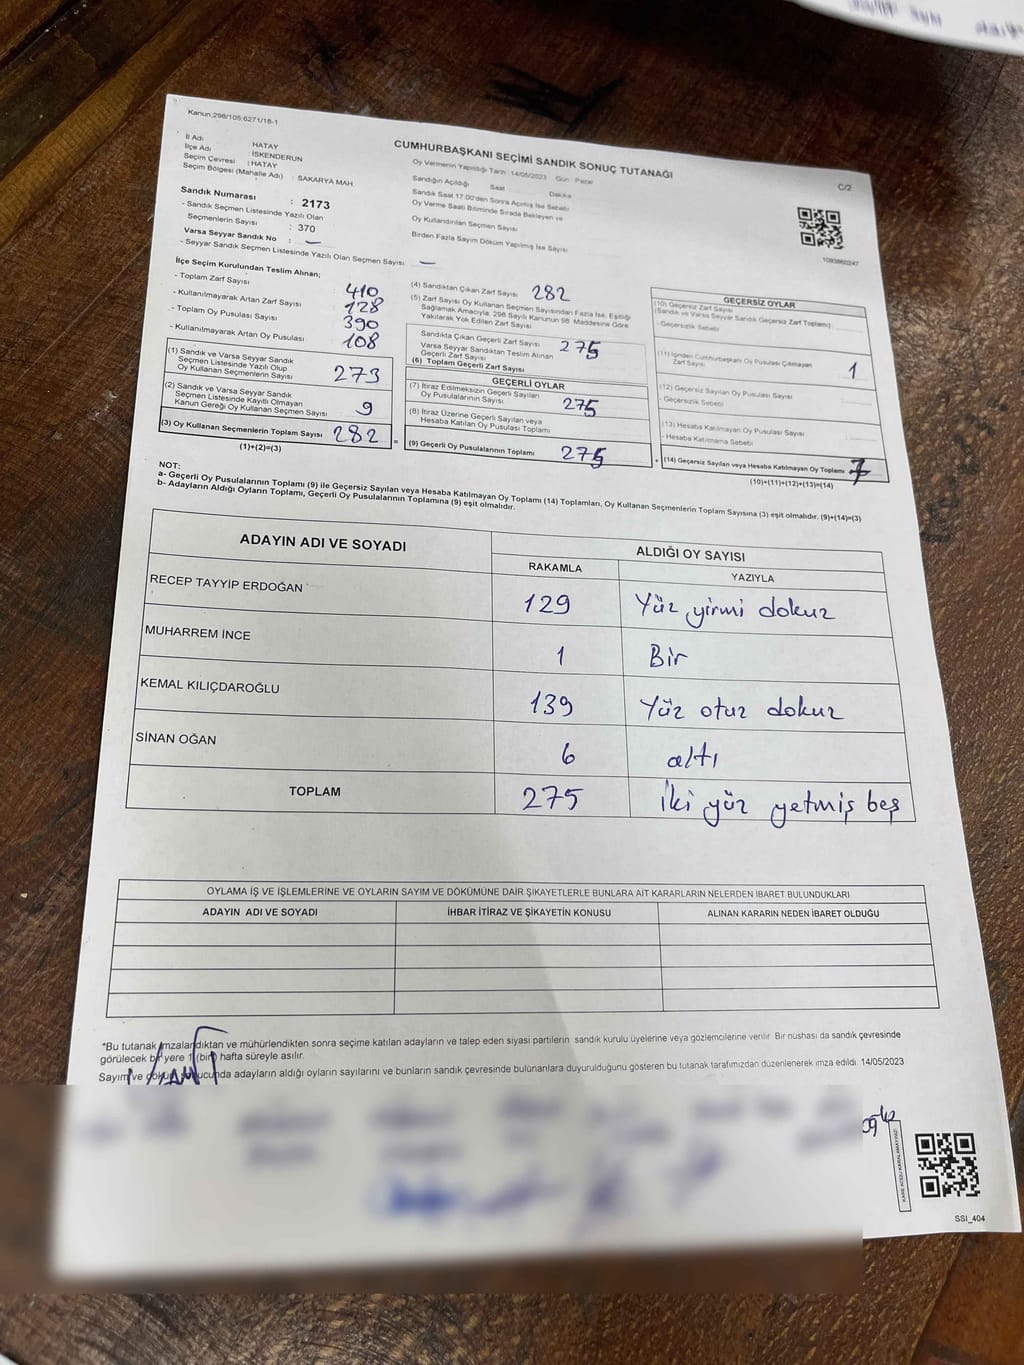 Kanun;298/105;6271/18-1
CUMHURBAŞKANI SEÇİMİ SANDIK SONUÇ TUTANAĞI
C/2
İl Adı : HATAY
İlçe Adı : İSKENDERUN
Seçim Çevresi : HATAY
Seçim Bölgesi (Mahalle Adı) : SAKARYA MAH.
Oy Vermenin Yapıldığı Tarih : 14/05/2023 Gün : Pazar
Sandığın Açıldığı Saat Dakika
Sandık Saat 17.00'den Sonra Açılmış İse Sebebi
Oy Verme Saati Bitiminde Sırada Bekleyen ve
Oy Kullandırılan Seçmen Sayısı
Birden Fazla Sayım Döküm Yapılmış İse Sayısı
1093860247
Sandık Numarası : 2173
- Sandık Seçmen Listesinde Yazılı Olan
Seçmenlerin Sayısı : 370
Varsa Seyyar Sandık No : —
- Seyyar Sandık Seçmen Listesinde Yazılı Olan Seçmen Sayısı : —
İlçe Seçim Kurulundan Teslim Alınan;
- Toplam Zarf Sayısı : 410
- Kullanılmayarak Artan Zarf Sayısı : 128
- Toplam Oy Pusulası Sayısı : 390
- Kullanılmayarak Artan Oy Pusulası : 108
(1) Sandık ve Varsa Seyyar Sandık
Seçmen Listesinde Yazılı Olup
Oy Kullanan Seçmenlerin Sayısı 273
(2) Sandık ve Varsa Seyyar Sandık
Seçmen Listesinde Kayıtlı Olmayan
Kanun Gereği Oy Kullanan Seçmen Sayısı 9
(3) Oy Kullanan Seçmenlerin Toplam Sayısı 282
(1)+(2)=(3)
(4) Sandıktan Çıkan Zarf Sayısı 282
(5) Zarf Sayısı Oy Kullanan Seçmen Sayısından Fazla İse, Eşitliği
Sağlamak Amacıyla; 298 Sayılı Kanunun 98. Maddesine Göre
Yakılarak Yok Edilen Zarf Sayısı
Sandıkta Çıkan Geçerli Zarf Sayısı 275
Varsa Seyyar Sandıktan Teslim Alınan
Geçerli Zarf Sayısı
(6) Toplam Geçerli Zarf Sayısı
GEÇERLİ OYLAR
(7) İtiraz Edilmeksizin Geçerli Sayılan
Oy Pusulalarının Sayısı 275
(8) İtiraz Üzerine Geçerli Sayılan veya
Hesaba Katılan Oy Pusulası Toplamı
= (9) Geçerli Oy Pusulalarının Toplamı 275
GEÇERSİZ OYLAR
(10) Geçersiz Zarf Sayısı
(Sandık ve Varsa Seyyar Sandık Geçersiz Zarf Toplamı)
- Geçersizlik Sebebi
(11) İçinden Cumhurbaşkanı Oy Pusulası Çıkmayan
Zarf Sayısı 1
(12) Geçersiz Sayılan Oy Pusulası Sayısı
- Geçersizlik Sebebi
(13) Hesaba Katılmayan Oy Pusulası Sayısı
- Hesaba Katılmama Sebebi
+ (14) Geçersiz Sayılan veya Hesaba Katılmayan Oy Toplamı 7
(10)+(11)+(12)+(13)=(14)
NOT:
a- Geçerli Oy Pusulalarının Toplamı (9) ile Geçersiz Sayılan veya Hesaba Katılmayan Oy Toplamı (14) Toplamları, Oy Kullanan Seçmenlerin Toplam Sayısına (3) eşit olmalıdır. (9)+(14)=(3)
b- Adayların Aldığı Oyların Toplamı, Geçerli Oy Pusulalarının Toplamına (9) eşit olmalıdır.
ADAYIN ADI VE SOYADI ALDIĞI OY SAYISI
RAKAMLA YAZIYLA
RECEP TAYYİP ERDOĞAN 129 Yüz yirmi dokuz
MUHARREM İNCE 1 Bir
KEMAL KILIÇDAROĞLU 139 Yüz otuz dokuz
SİNAN OĞAN 6 altı
TOPLAM 275 İki yüz yetmiş beş
OYLAMA İŞ VE İŞLEMLERİNE VE OYLARIN SAYIM VE DÖKÜMÜNE DAİR ŞİKAYETLERLE BUNLARA AİT KARARLARIN NELERDEN İBARET BULUNDUKLARI
ADAYIN ADI VE SOYADI İHBAR İTİRAZ VE ŞİKAYETİN KONUSU ALINAN KARARIN NEDEN İBARET OLDUĞU
*Bu tutanak imzalandıktan ve mühürlendikten sonra seçime katılan adayların ve talep eden siyasi partilerin sandık kurulu üyelerine veya gözlemcilerine verilir. Bir nüshası da sandık çevresinde
görülecek bir yere 1 (bir) hafta süreyle asılır.
Sayım ve döküm sonucunda adayların aldığı oyların sayılarını ve bunların sandık çevresinde bulunanlara duyurulduğunu gösteren bu tutanak tarafımızdan düzenlenerek imza edildi. 14/05/2023
SSI_404